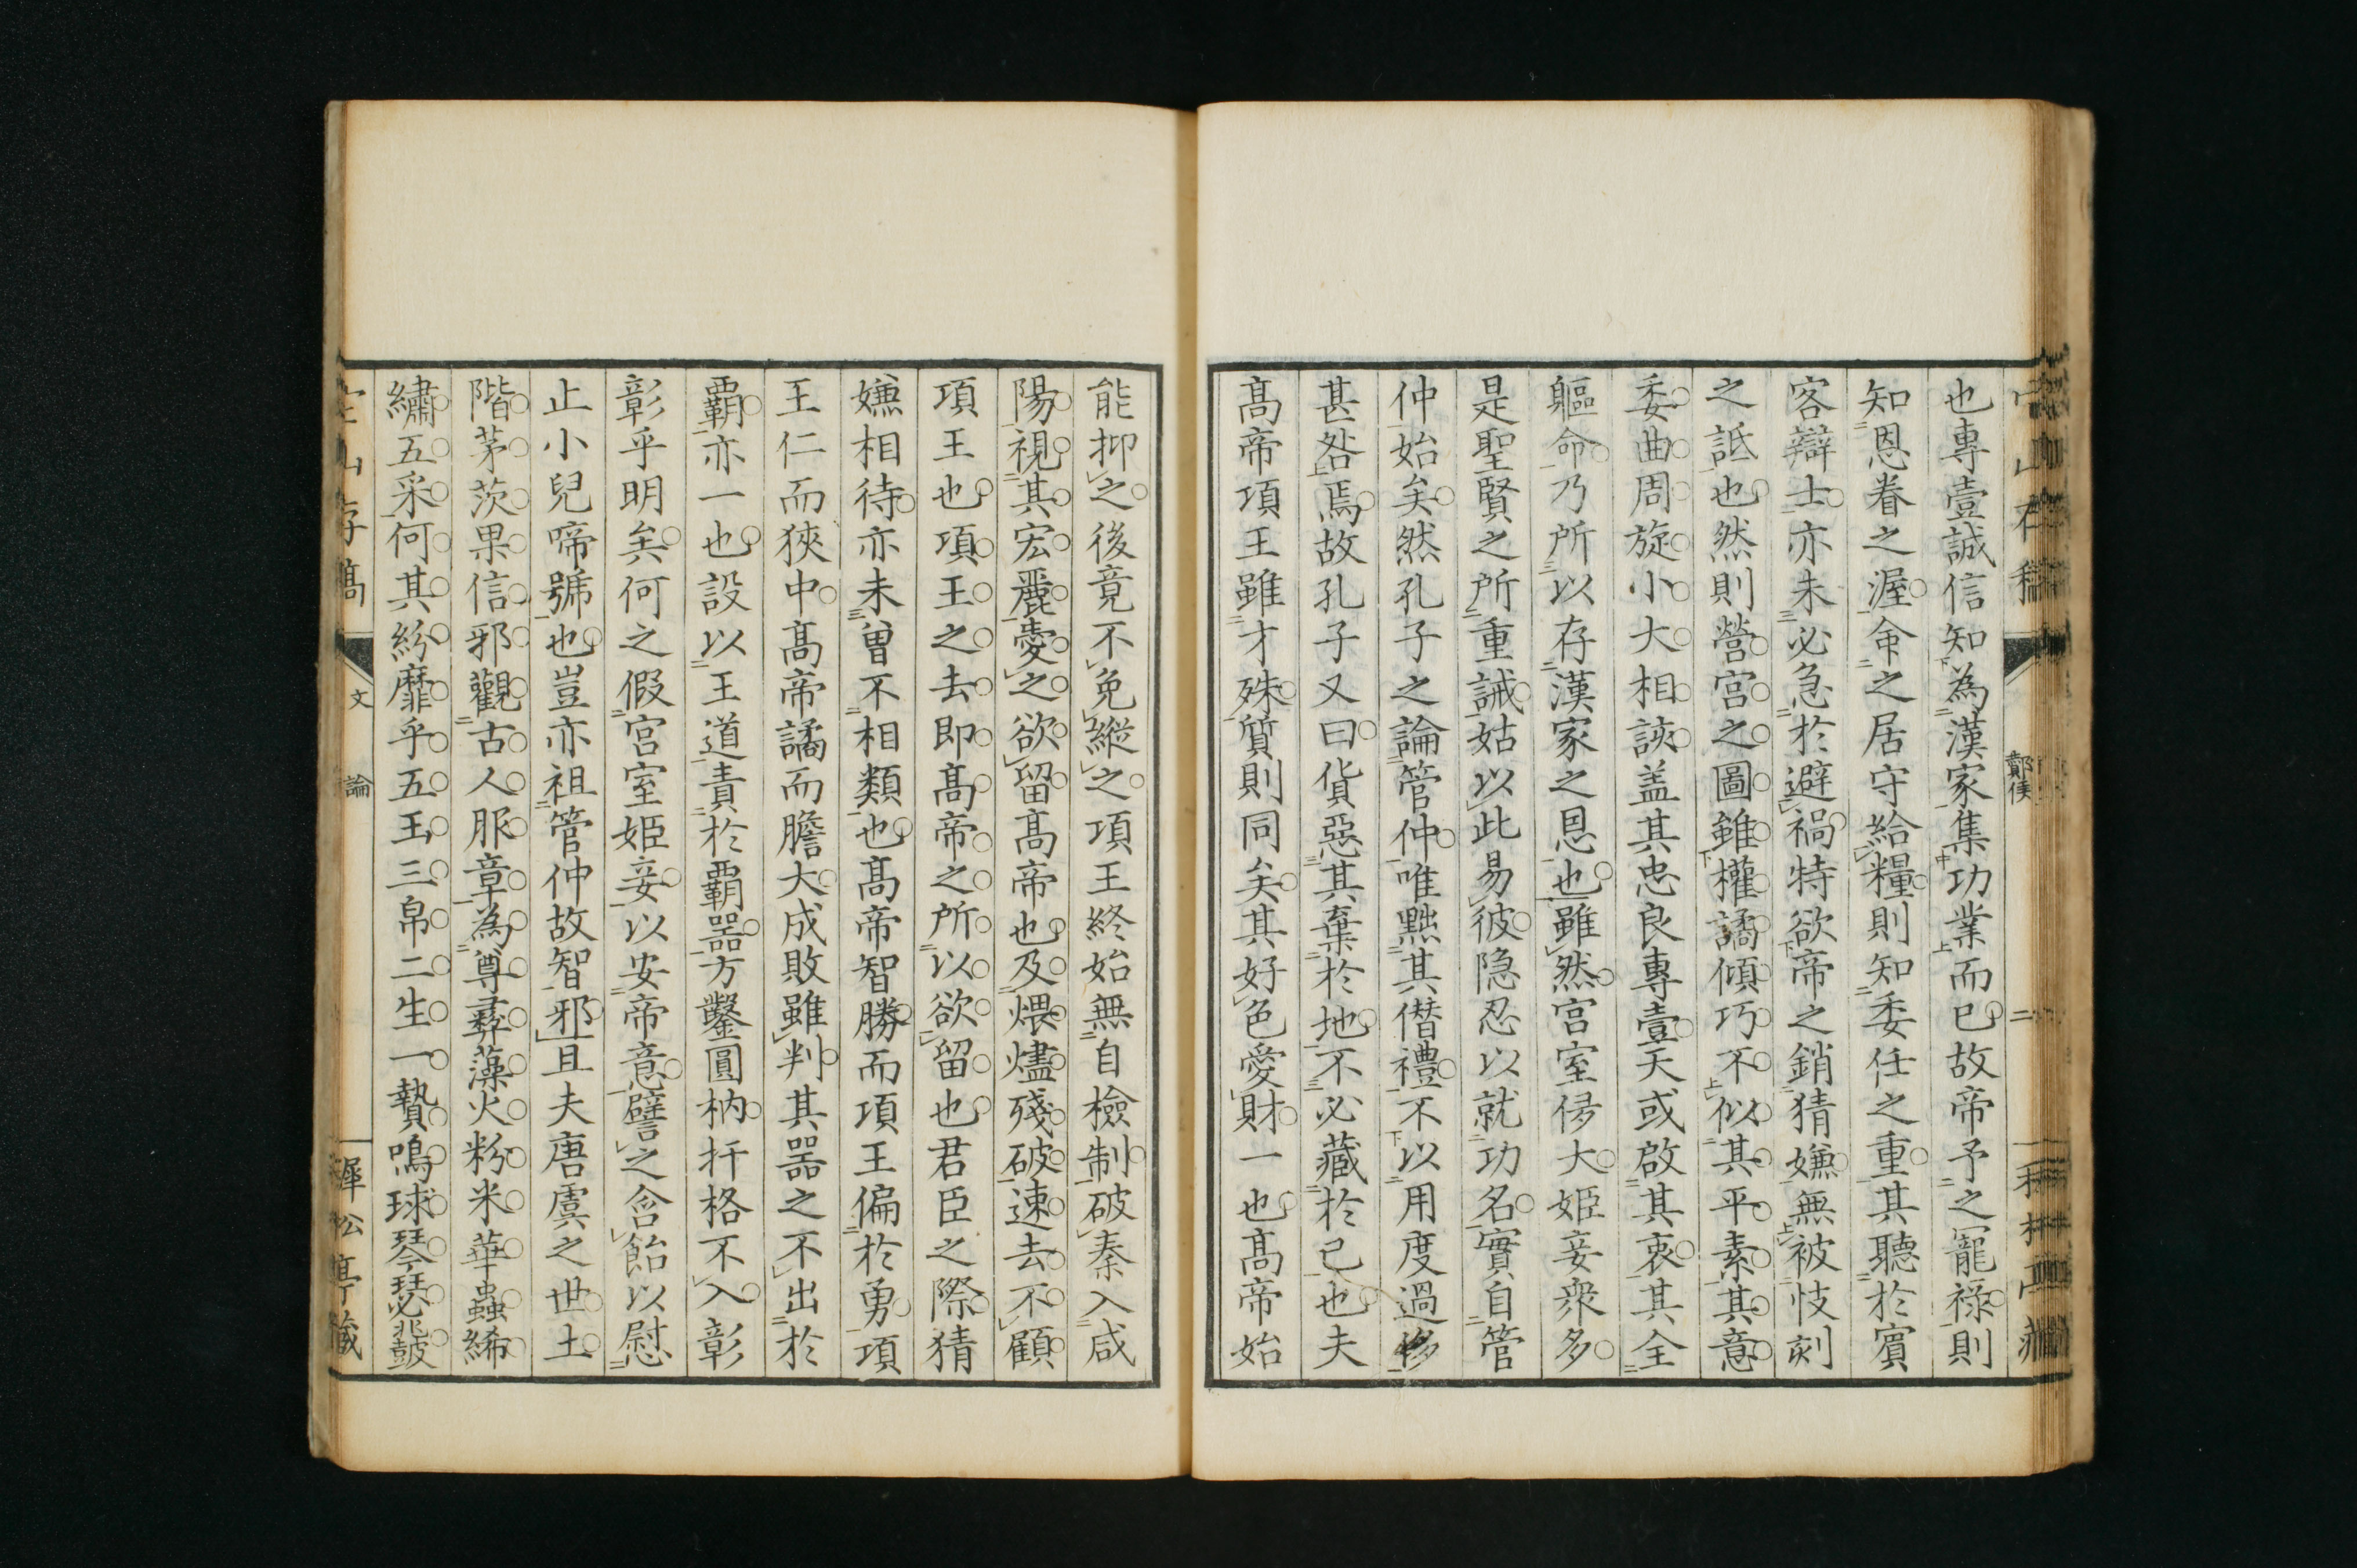 也專壹誠信知為漢家集功業而已故帝予之寵祿則
知恩眷之渥命之居守給糧則知委任之重其聽於賓
客辯士亦未必急於避禍特欲帝之銷猜嫌無被忮刻
之詆也然則營宮之圖雖權譎傾巧不似其平素其意
委曲周旋小大相諒盖其忠良專壹天或啟其衷其全
軀命乃所以存漢家之恩也雖然宮室侈大姬妾衆多
是聖賢之所重誡姑以此易彼隐忍以就功名實自管
仲始矣然孔子之論管仲唯黜其僣禮不以用度過侈
甚咎焉故孔子又曰貨惡其棄於地不必藏於己也夫
髙帝項王雖才殊質則同矣其好色愛財一也髙帝始
能抑之後竟不免縱之項王終始無自檢制破秦入咸
陽視其宏麗愛之欲留髙帝也及煨燼殘破速去不顧
項王也項王之去即髙帝之所以欲留也君臣之際猜
嫌相待亦未曽不相類也髙帝智勝而項王偏於勇項
王仁而狹中髙帝譎而膽大成敗雖判其噐之不出於
覇亦一也設以王道責於覇噐方鑿圓枘扞格不入彰
彰乎明矣何之假宮室姬妾以安帝意譬之含飴以慰
止小兒啼號也豈亦祖管仲故智邪且夫唐虞之世土
階茅茨果信邪觀古人服章為尊彛藻火粉米華蟲絺
繡五采何其紛靡乎五玉三帛二生一贄鳴球琴瑟鼗
文 論
酇侯 二